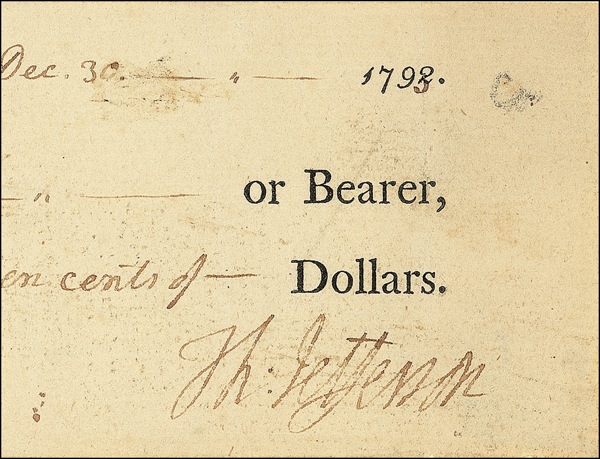 Dec. 30. — " — 1793.
— " — or Bearer,
en cents of — Dollars.
Th: Jefferson